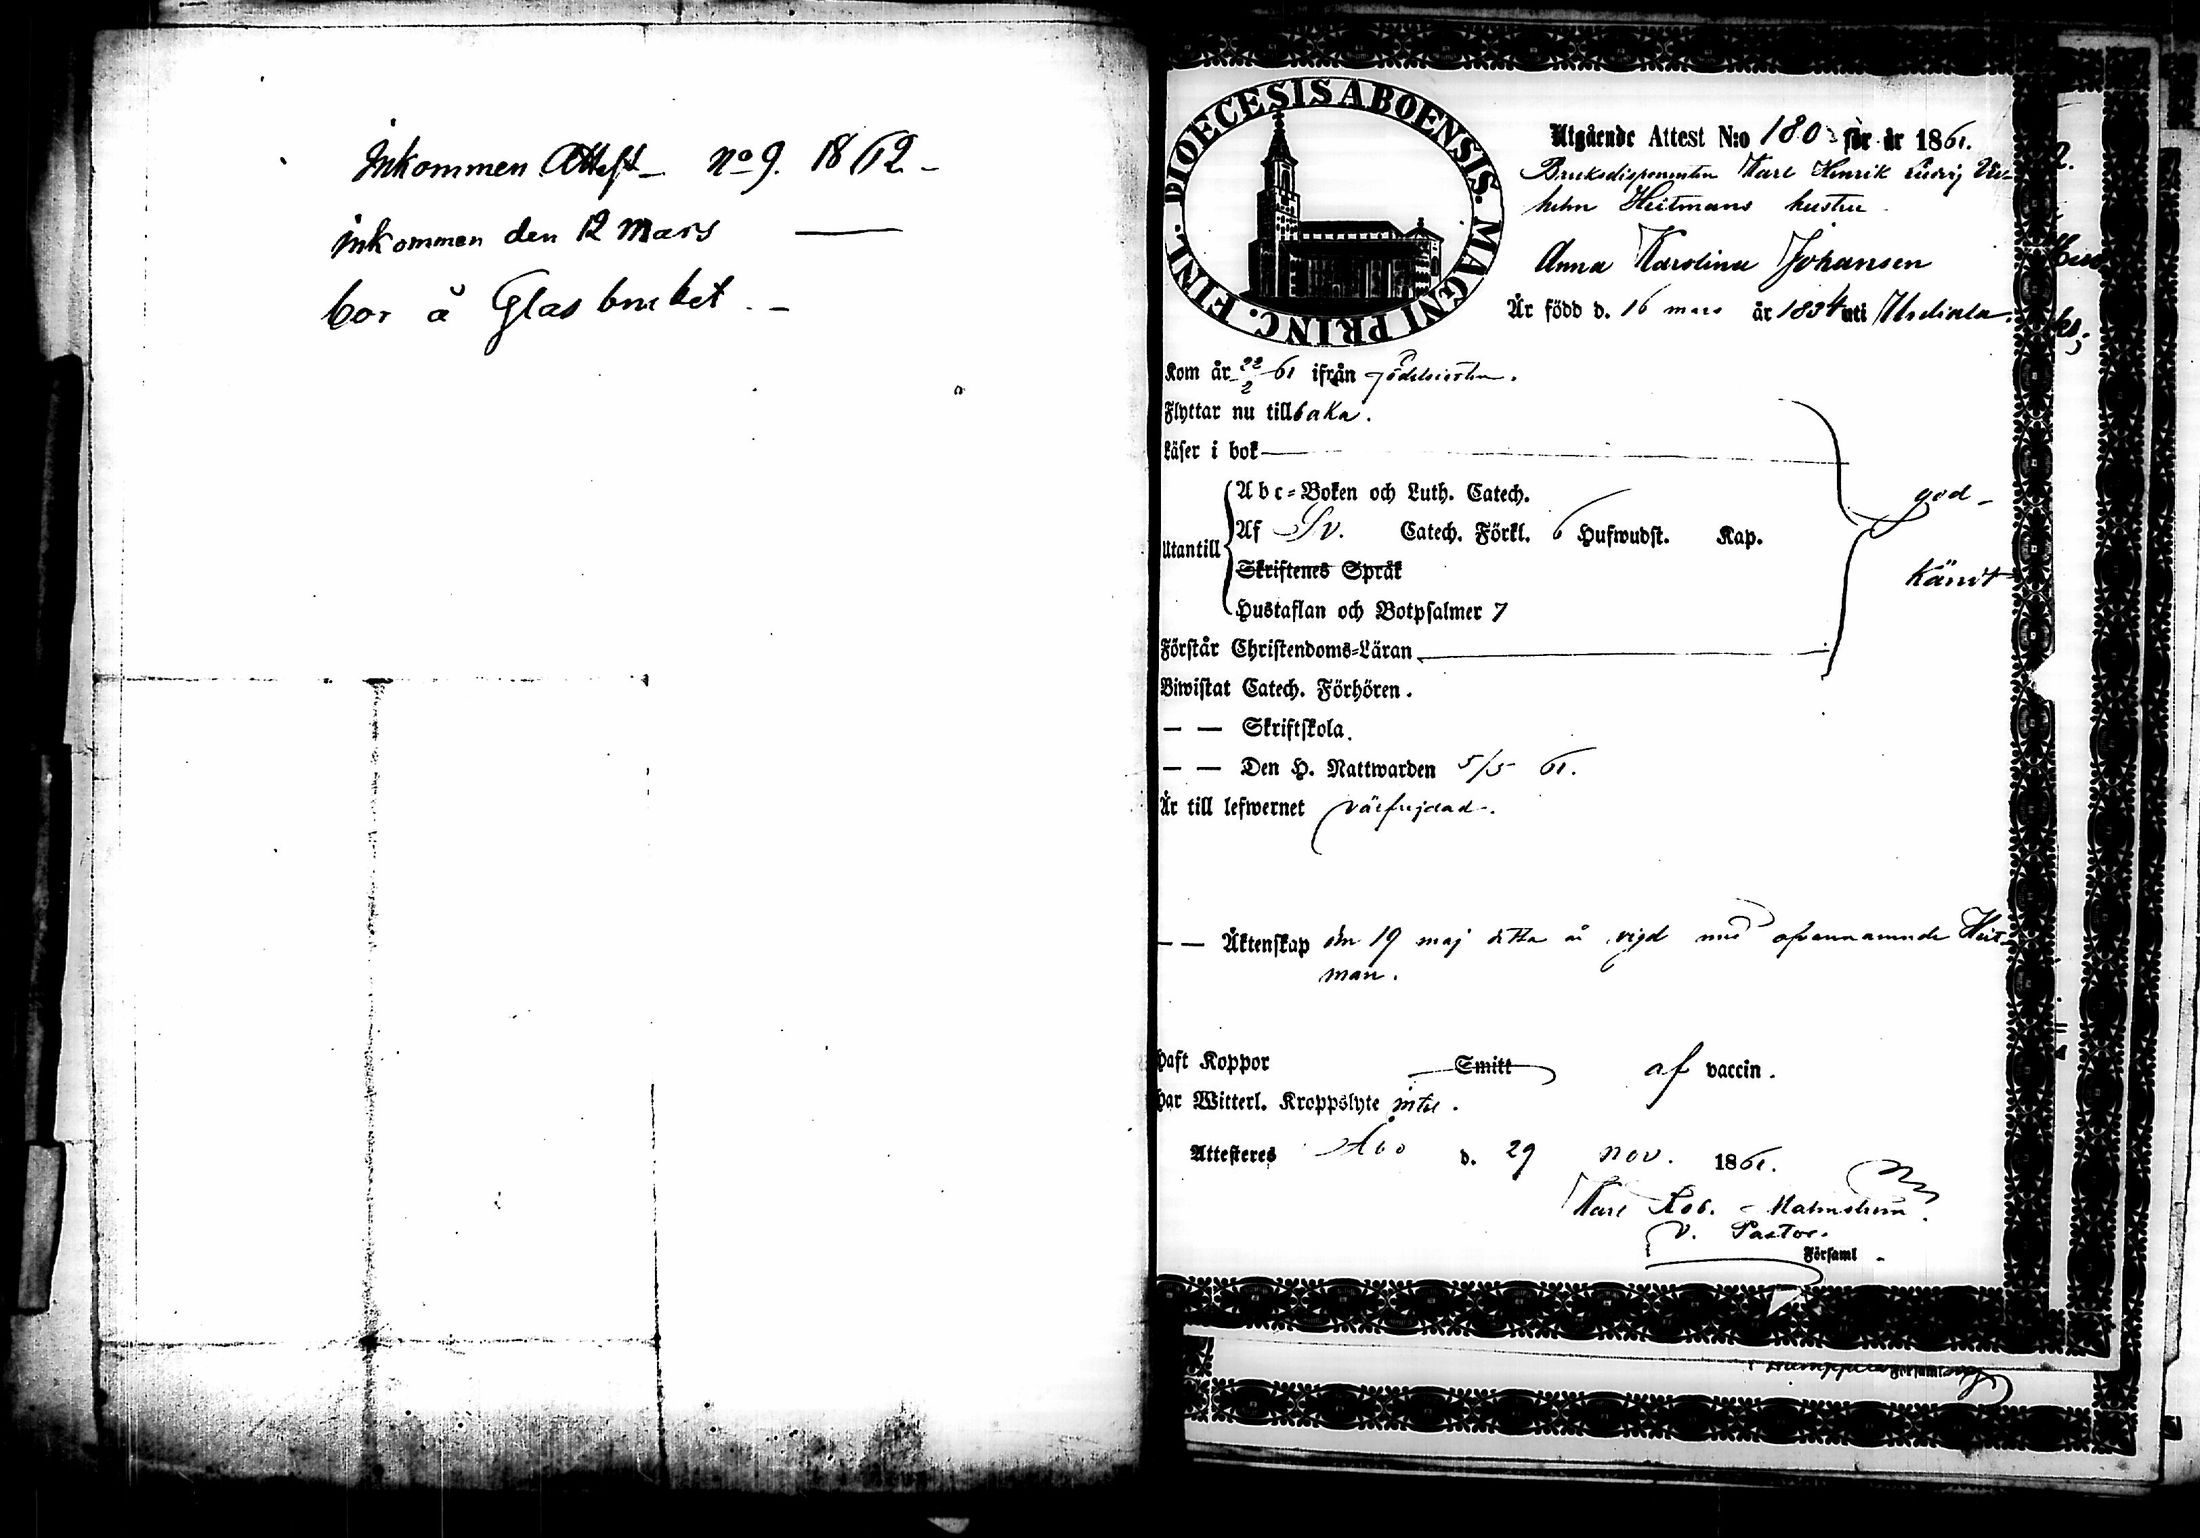 Inkommen Attest - No 9. 1862 -
Inkommen den 12 Mars
bor å Glasbruket. -
DIOECESIS ABOENSIS. MAGNI PRINC. FINL.
Utgående Attest N:o 180 för år 1861.
Bruksdisponenten Karl Henrik Ludvig Wil-
helm Heitmans hustru
Anna Karolina Johansen
Är född d. 16 mars år 1834 uti Urdiala.
Kom år 22/2 61 ifrån
Flyttar nu tillbaka.
Läser i bok
Utantill
Abc-Boken och Luth. Catech.
Af Sv. Catech. Förkl. 6 Hufwudst. Kap.
Skriftenes Språk
Hustaflan och Botpsalmer 7
god-
kändt
Förstår Christendoms-Läran
Biwistat Catech. Förhören.
— — Skriftskola.
— — Den H. Nattwarden 5/5 61.
Är till lefwernet välfrejdad.
— — Äktenskap den 19 maj detta år vigd med ofvannämnde Heit-
man.
Haft Koppor Smitt af vaccin.
Har Witterl. Kroppslyte intet.
Attesteres Åbo d. 29 nov. 1861.
Karl Rob. Malmström.
V. Pastor.
Församl